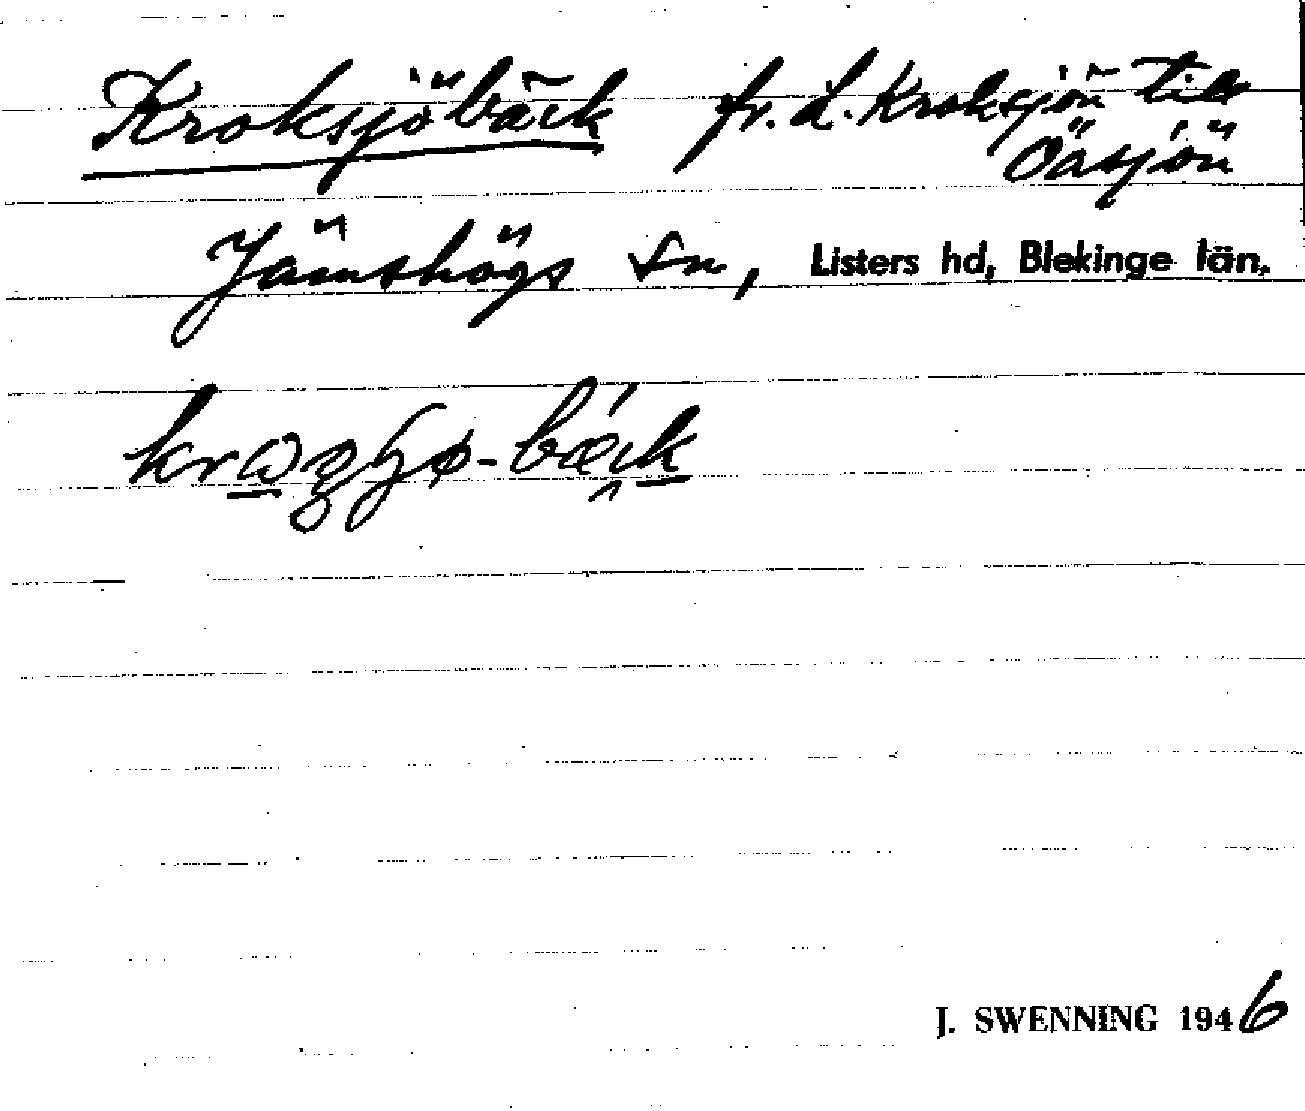 Kroksjöbäck fr. L. Kroksjön till
Öasjön
Jämshögs Sn, Listers hd, Blekinge län.
J. SWENNING 1946